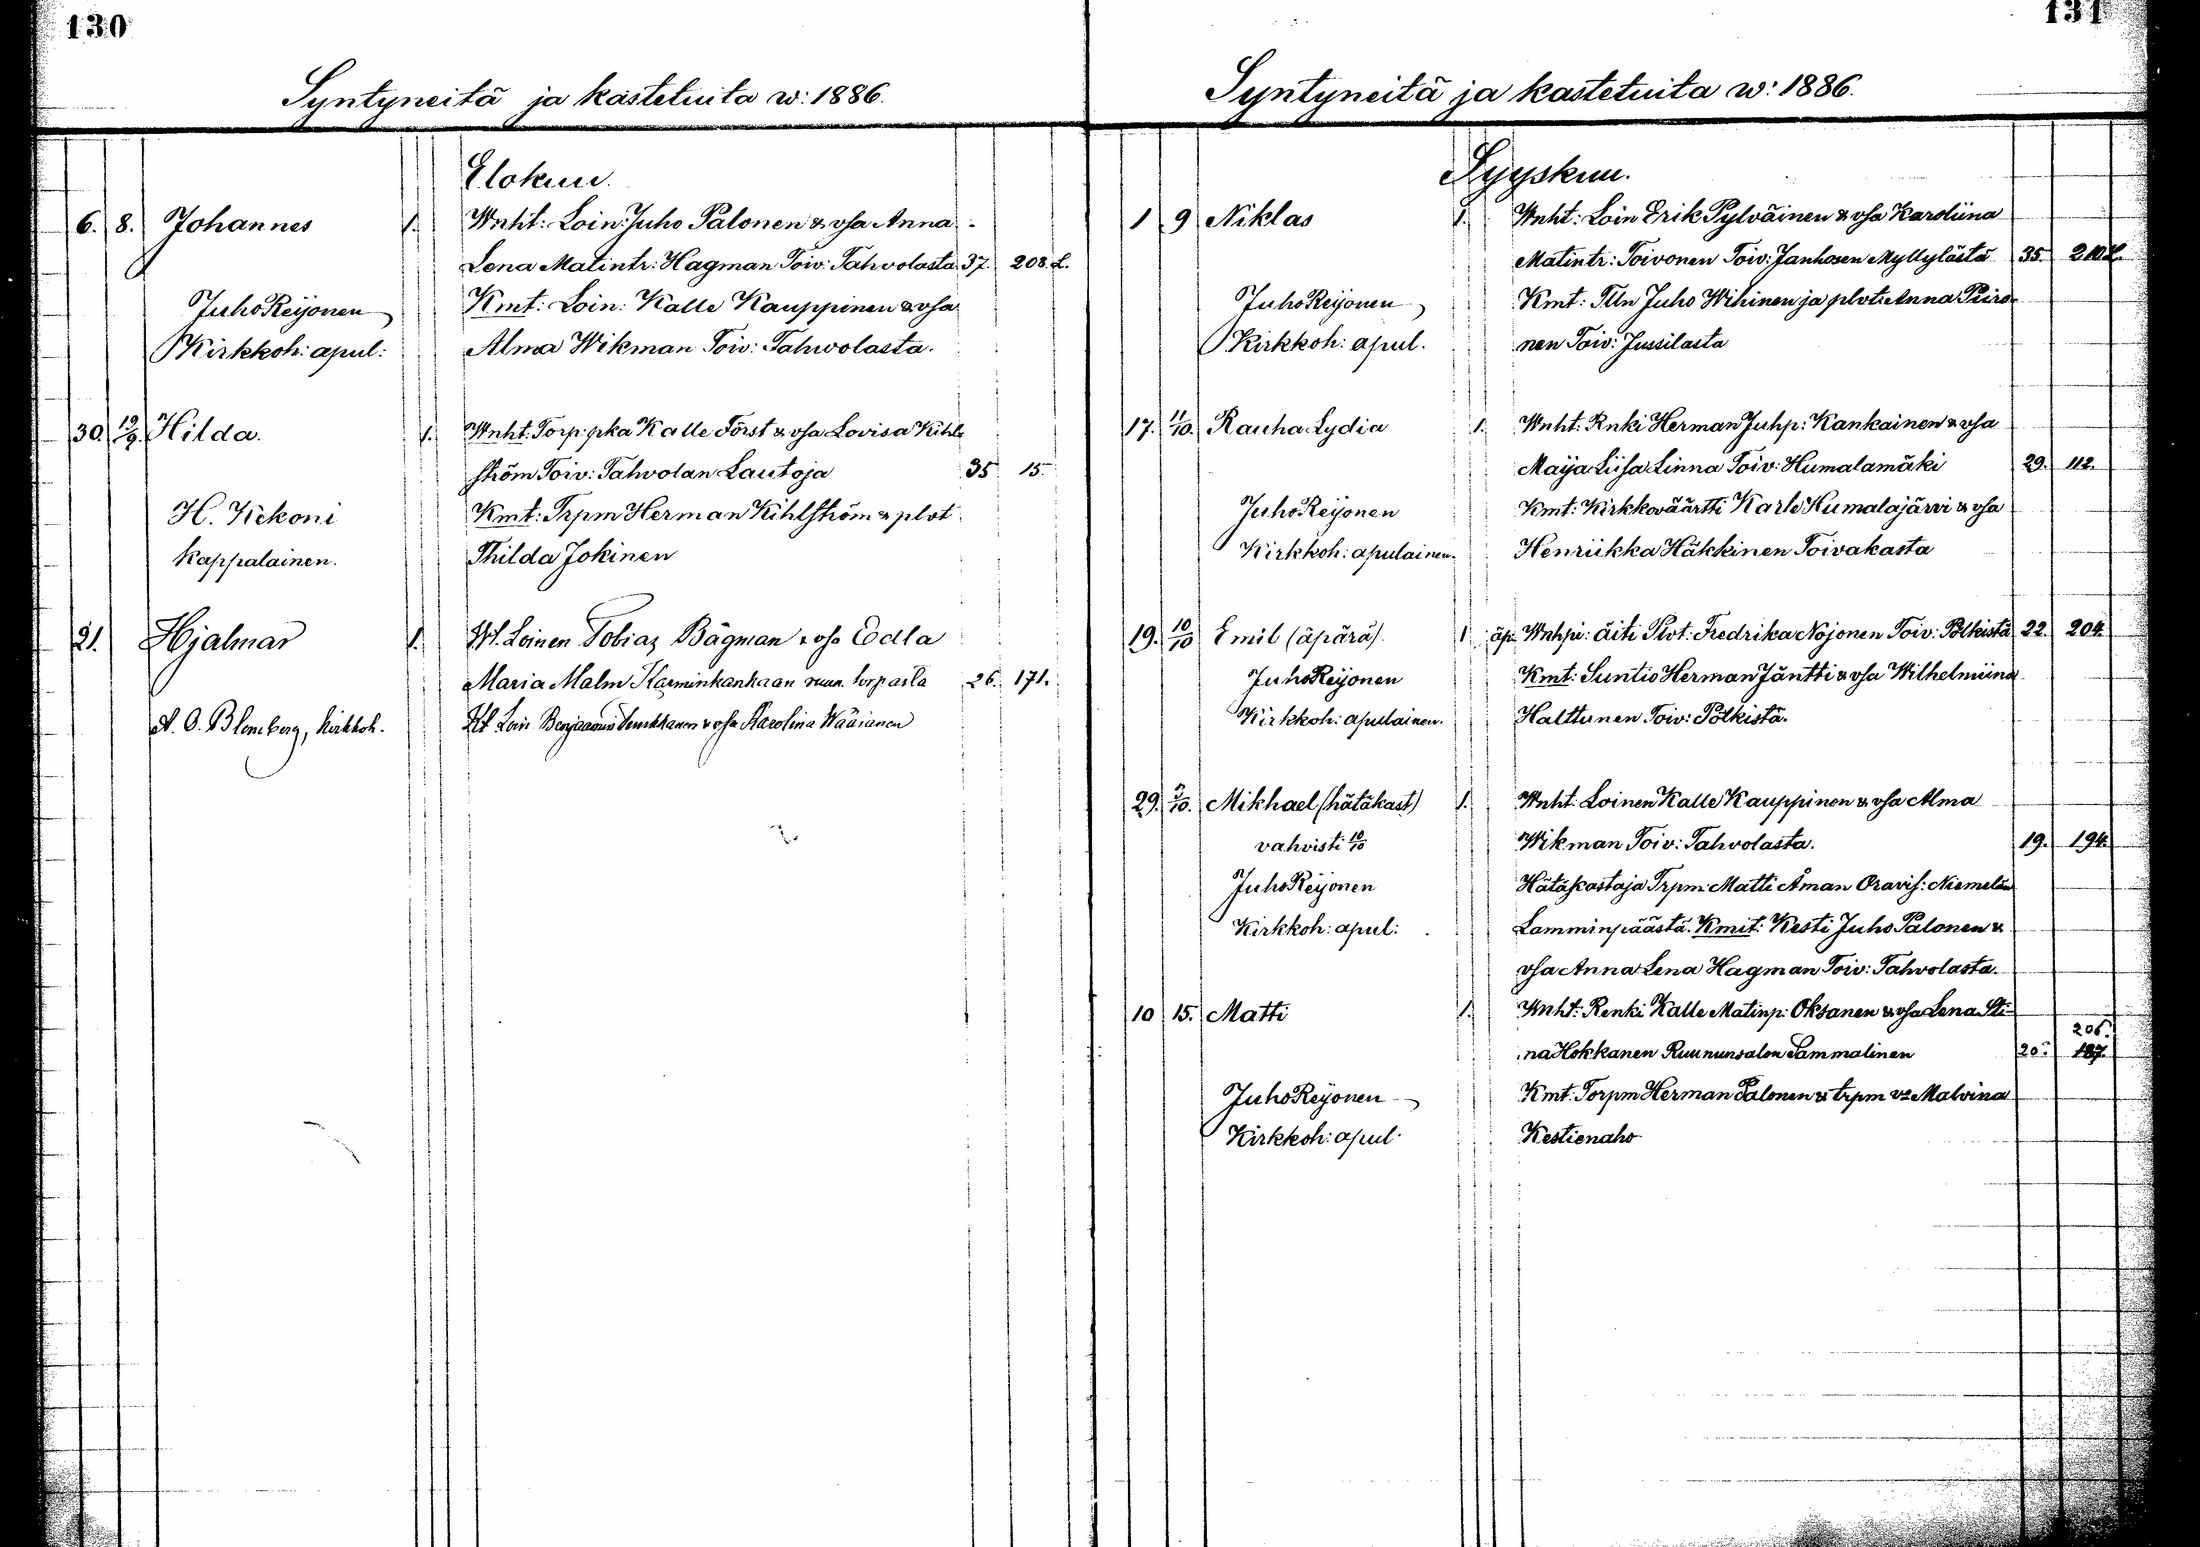 130
Syntyneitä ja kastetuita w: 1886.
Elokuu.
6. 8. Johannes 1. Wnht: Loin: Juho Palonen & vsa Anna
Lena Matintr: Hagman Toiv: Tahvolasta 37. 208. L.
Juho Reijonen Kmt: Loin: Kalle Kauppinen & vsa
Kirkkoh: apul: Alma Wikman Toiv: Tahvolasta.
30. 12/9. Hilda. 1. Wnht: Torp: pka Kalle Först & vsa Lovisa Kihl-
ström Toiv: Tahvolan Lautoja 35 15.
H. Kekoni Kmt: Trpm Herman Kihlström & plvt
Kappalainen. Thilda Jokinen
21. Hjalmar 1. Wt. Loinen Tobias Bågman & vsa Edla
Maria Malm Karminkankaan ruun. torpasta 26. 171.
A. O. Blomberg, kirkkoh. Kt Loin Benjamin & vsa Karolina Wääränen
131
Syntyneitä ja kastetuita w: 1886.
Syyskuu.
1 9 Niklas 1. Wnht: Loin Erik Pylväinen & vsa Karoliina
Matintr: Toivonen Toiv: Janhosen Myllylästä 35. 210 L.
Juho Reijonen Kmt: Tlln Juho Wihinen ja plvt: Anna Piiro-
Kirkkoh: apul. nen Toiv: Jussilasta
17. 11/10. Rauha Lydia 1. Wnht: Rnki Herman Juhp: Kankainen & vsa
Maija Liisa Linna Toiv: Humalamäki 29. 112.
Juho Reijonen Kmt: Kirkkoväärtti Karle Humalajärvi & vsa
Kirkkoh: apulainen. Henriikka Häkkinen Toivakasta
19. 10/10 Emil (äpärä) 1 äp. Wnhpi: äiti Plvt: Fredrika Nojonen Toiv: Pölkistä 22. 204.
Juho Reijonen Kmt: Suntio Herman Jäntti & vsa Wilhelmiina
Kirkkoh: apulainen. Halttunen Toiv: Pölkistä.
29. 3/10. Mikhael (hätäkast) 1. Wnht: Loinen Kalle Kauppinen & vsa Alma
vahvisti 10/10 Wikman Toiv: Tahvolasta. 19. 194.
Juho Reijonen Hätäkastaja Trpm: Matti Åman Oravis: Niemelän
Kirkkoh: apul: Lamminpäästä. Kmit: Kesti Juho Palonen &
vsa Anna Lena Hagman Toiv: Tahvolasta.
10 15. Matti 1. Wnht: Renki Kalle Matinp: Oksanen & vsa Lena Sti-
206.
na Hokkanen Ruununsalon Sammalinen 20. 187.
Juho Reijonen Kmt: Torpm Herman Palonen & trpm vo Malvina
Kirkkoh: apul. Kestienaho